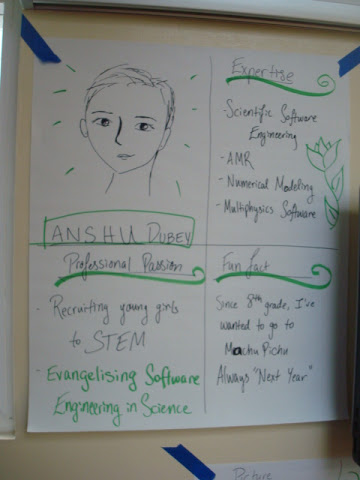 ANSHU DUBEY
Expertise
- Scientific Software
Engineering
- AMR
- Numerical Modeling
- Multiphysics Software
Professional Passion
- Recruiting young girls
to STEM
- Evangelising Software
Engineering in Science
Fun fact
Since 8th grade, I've
wanted to go to
Machu Pichu
Always "Next Year"
Picture